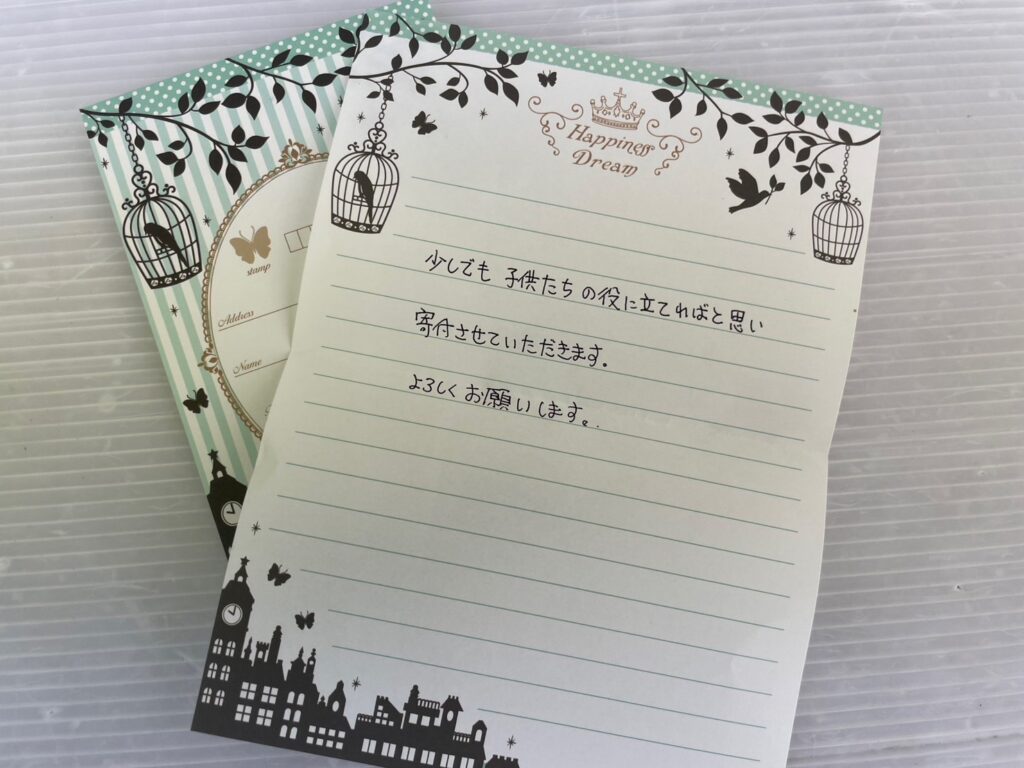 Happiness
Dream
少しでも 子供たち の役に立てればと思い
寄付させていただきます。
よろしくお願いします。
stamp
Address
Name